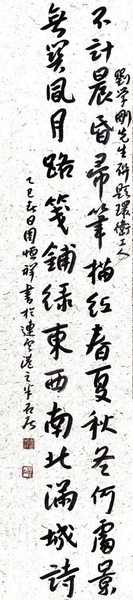 劉学剛先生題環衛工人
不計晨昏帚筆描紅春夏秋冬何處景
無關風月路箋鋪緑東西南北滿城詩
乙巳春日周恒祥書於連雲港之半石居